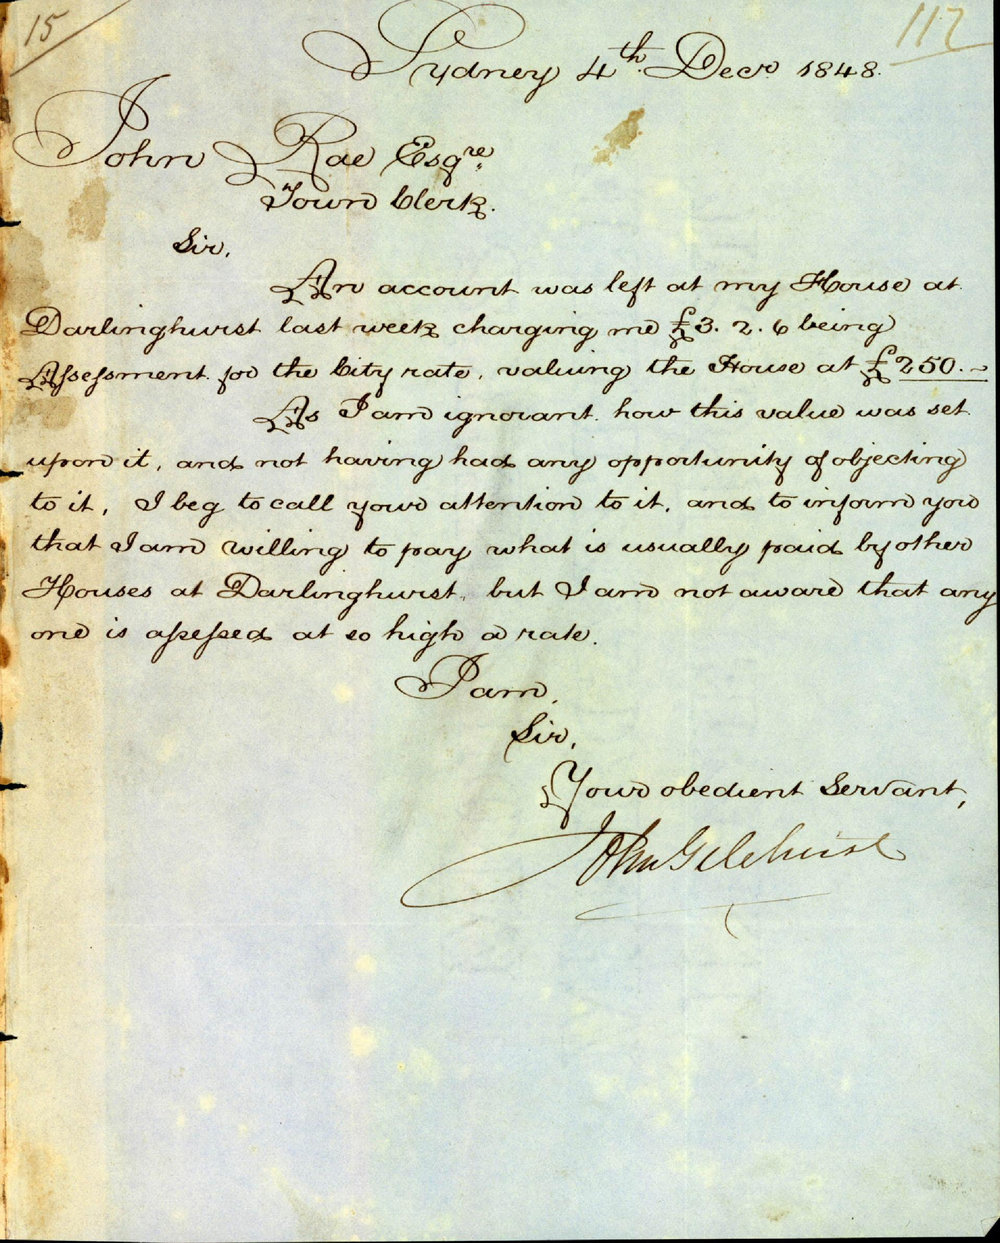 15
112
Sydney 4th. Decr 1848.
John Rae Esqre.
Town Clerk.
Sir,
An account was left at my House at
Darlinghurst last week charging me £3. 2. 6 being
Assessment for the City rate, valuing the House at £250.~
As I am ignorant how this value was set
upon it, and not having had any opportunity of objecting
to it, I beg to call your attention to it, and to inform you
that I am willing to pay what is usually paid by other
Houses at Darlinghurst, but I am not aware that any
one is assessed at so high a rate.
I am,
Sir,
Your obedient Servant,
John Gilchrist